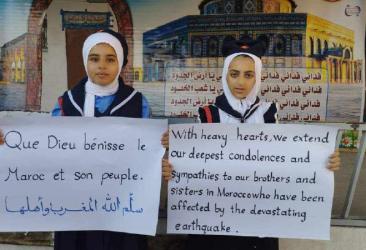 فدائي فدائي فدائي يا أرض الجدود
فدائي فدائي
Que Dieu bénisse le
Maroc et son peuple.
سلّم الله المغرب وأهلها
With heavy hearts, we extend
our deepest condolences and
sympathies to our brothers and
sisters in Morocco who have been
affected by the devastating
earthquake.